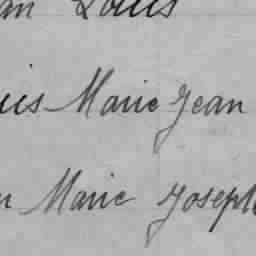 an Louis
uis Marie Jean
n Marie Joseph